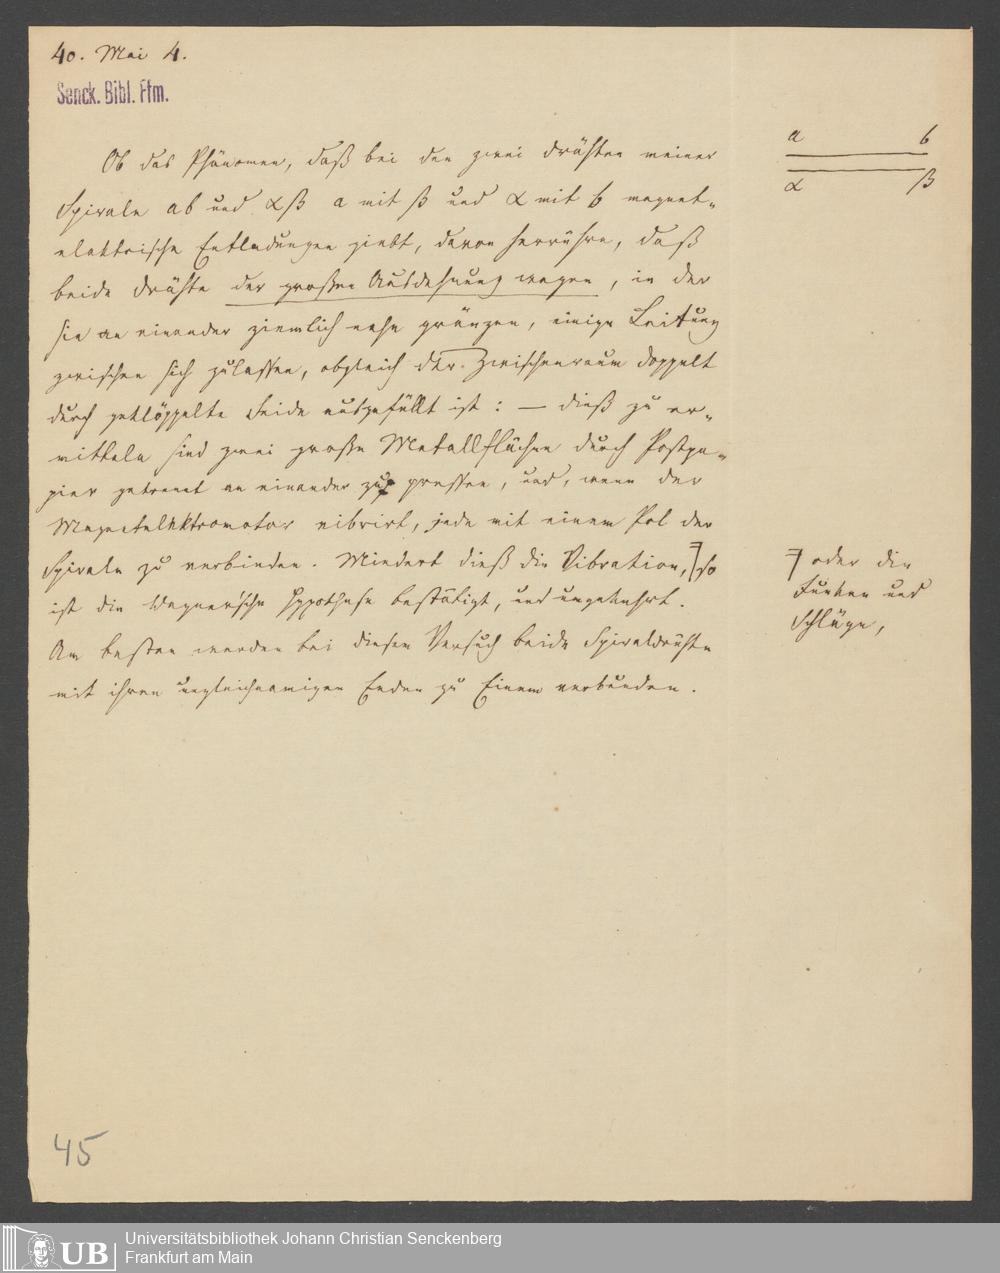 40. Mai 4.
Senck. Bibl. Ffm.
Ob das Phänomen, daß bei den zwei Drähten meiner
Spirale ab und αß a mit ß und α mit b magnet-
elektrische Entladungen giebt, davon herrühre, daß
beide Drähte der großen Ausdehnung wegen, in der
sie an einander ziemlich nahe gränzen, einige Leitung
zwischen sich zulassen, obgleich der Zwischenraum doppelt
durch geklöppelte Seide ausgefüllt ist: — dieß zu er-
mitteln sind zwei große Metallflächen durch Postpa-
pier getrennt an einander zu pressen, und, wenn der
Magnetelektromotor vibrirt, jede mit einem Pol der
Spirale zu verbinden. Mindert dieß die Vibration, so
ist die Wagner'sche Hypothese bestätigt, und umgekehrt.
Am besten werden bei diesem Versuch beide Spiraldrähte
mit ihren ungleichnamigen Enden zu Einem verbunden.
a b
α ß
oder die
Funken und
Schläge,
45
UB
Universitätsbibliothek Johann Christian Senckenberg
Frankfurt am Main